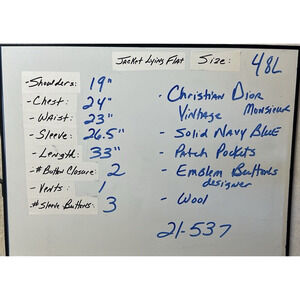 Jacket Lying Flat Size: 48L
-Shoulders: 19"
-Chest: 24"
-Waist: 23"
-Sleeve: 26.5"
-Length: 33"
-#Button Closure: 2
-Vents: 1
#Sleeve Buttons: 3
- Christian Dior
Vintage Monsieur
- Solid Navy Blue
- Patch Pockets
- Emblem Buttons
designer
- Wool
21-537